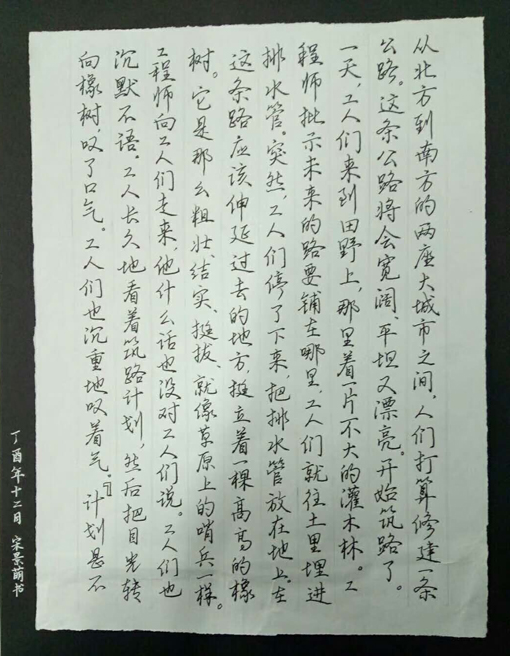 从北方到南方的两座大城市之间，人们打算修建一条
公路。这条公路将会宽阔、平坦又漂亮。开始筑路了。
一天，工人们来到田野上，那里着一片不大的灌木林。工
程师批示未来的路要铺在哪里，工人们就往土里埋进
排水管。突然，工人们停了下来，把排水管放在地上。在
这条路应该伸延过去的地方，挺立着一棵高高的橡
树。它是那么粗壮、结实、挺拔、就像草原上的哨兵一样。
工程师向工人们走来，他什么话也没对工人们说。工人们也
沉默不语。工人长久地看着筑路计划，然后把目光转
向橡树，叹了口气。工人们也沉重地叹着气。』计划是不
丁酉年十二月 宋景萌书